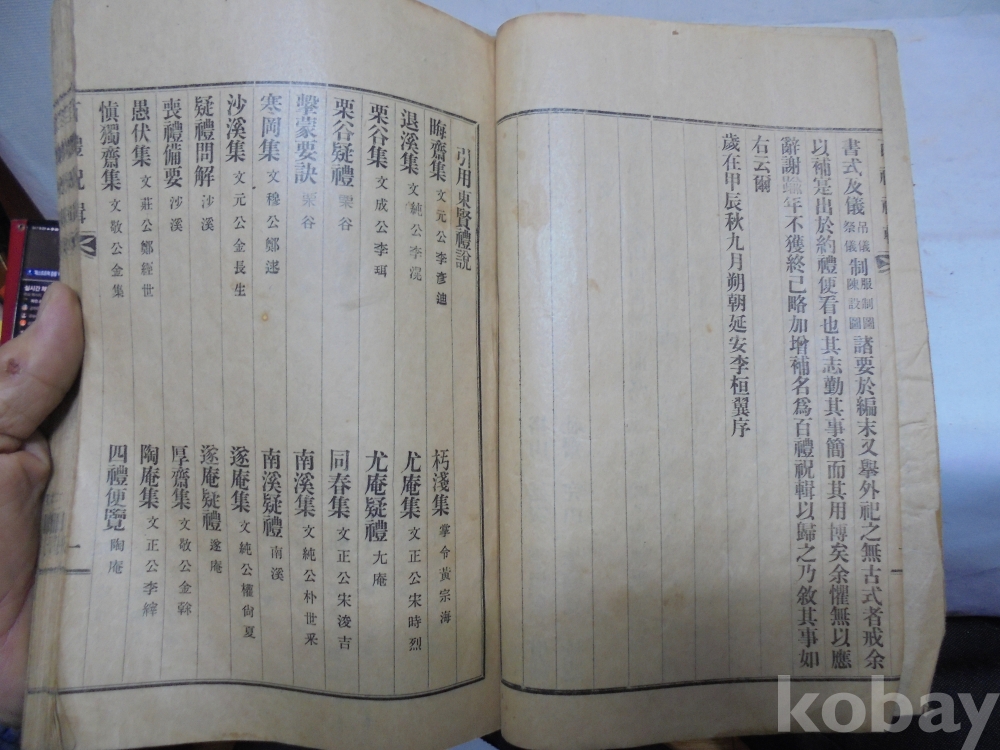 書式及儀吊儀祭儀制服制圖陳設圖諸要於編末又擧外祀之無古式者戒余
以補是出於約禮便看也其志勤其事簡而其用博矣余懼無以應
辭謝年不獲終已略加增補名爲百禮祝輯以歸之乃敘其事如
右云爾
歲在甲辰秋九月朔朝延安李桓翼序
引用東賢禮說
晦齋集 文元公李彥迪
朽淺集 掌令黃宗海
退溪集 文純公李滉
尤庵集 文正公宋時烈
栗谷集 文成公李珥
尤庵疑禮 尤庵
栗谷疑禮 栗谷
同春集 文正公宋浚吉
擊蒙要訣 栗谷
南溪集 文純公朴世采
寒岡集 文穆公鄭逑
南溪疑禮 南溪
沙溪集 文元公金長生
遂庵集 文純公權尙夏
疑禮問解 沙溪
遂庵疑禮 遂庵
喪禮備要 沙溪
厚齋集 文敬公金榦
愚伏集 文莊公鄭經世
陶庵集 文正公李縡
愼獨齋集 文敬公金集
四禮便覽 陶庵
百禮祝輯
一
kobay